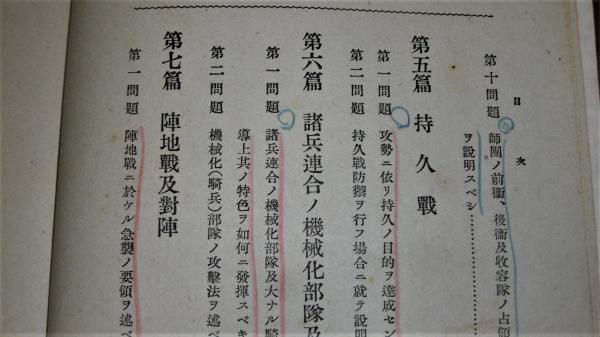 目次
第十問題 師團ノ前衞、後衞及收容隊ノ占領
ヲ說明スベシ…………
第五篇 持久戰
第一問題 攻勢ニ依リ持久ノ目的ヲ達成セン
第二問題 持久戰防禦ヲ行フ場合ニ就テ說明
第六篇 諸兵連合ノ機械化部隊及
第一問題 諸兵連合ノ機械化部隊及大ナル騎
導上其ノ特色ヲ如何ニ發揮スベキ
第二問題 機械化(騎兵)部隊ノ攻擊法ヲ述ベ
第七篇 陣地戰及對陣
第一問題 陣地戰ニ於ケル急襲ノ要領ヲ述ベ